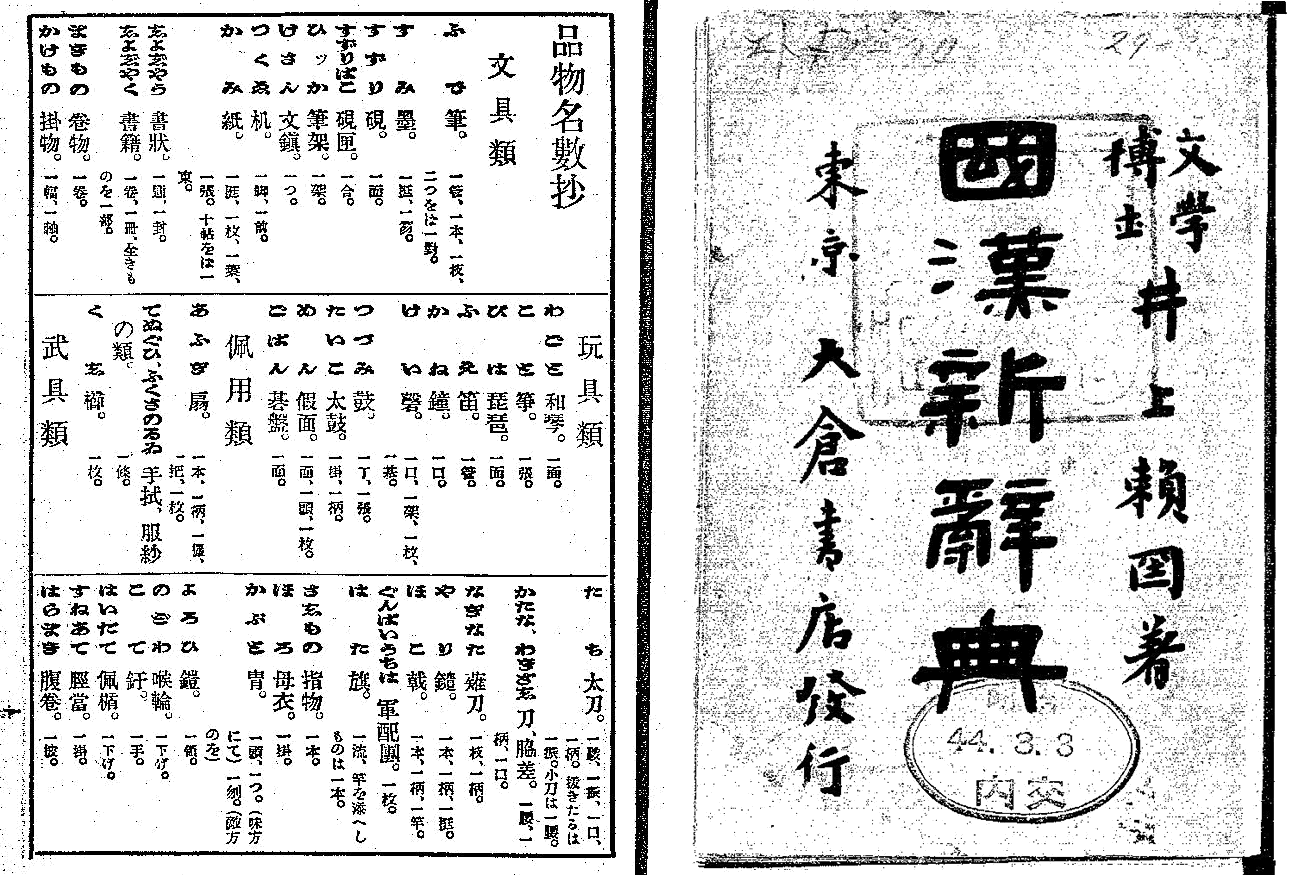 文學
博士
井上賴圀著
國漢新辭典
東京 大倉書店發行
44.3.3
内交
品物名數抄
文具類
ふで 筆。 一管、一本、一枝、
二つをは一對。
すみ 墨。 一挺、一笏。
すずり 硯。 一面。
すずりばこ 硯匣。 一合。
ひッか 筆架。 一架。
けさん 文鎭。 一つ。
つくゑ 机。 一脚、一前。
かみ 紙。 一葉、
一張。十帖をは一
束。
志よ志やう 書狀。 一封。
志よ志やく 書籍。 一卷、一冊、
のを一部。
まきもの 卷物。 一卷。
かけもの 掛物。 一幅、一軸。
玩具類
わごと 和琴。 一面。
こと 箏。 一張。
びは 琵琶。 一面。
ふえ 笛。 一管。
かね 鐘。 一口。
けい 磬。 一口、一架、一枚、
一基。
つづみ 鼓。 一丁、一張。
たいこ 太鼓。 一掛、一柄。
めん 假面。 一面、一頭、一枚。
ごばん 碁盤。 一面。
佩用類
あふぎ 扇。 一本、一柄、
一把、一枚。
てぬぐひ、ふくさのるゐ 手拭、服紗
の類。 一條。
くし 櫛。 一枚。
武具類
たち 太刀。 一振、一口、
一柄。
一振。小刀は一腰。
かたな、わきざし 刀、脇差。 一腰、一
柄、一口。
なぎなた 薙刀。 一枝、一柄。
やり 鑓。 一本、一柄、一挺。
ほこ 戟。 一本、一柄、一竿。
ぐんばいうちは 軍配團。 一枚。
はた 旗。 一流、竿を添へし
ものは一本。
さしもの 指物。 一本。
ほろ 母衣。 一掛。
かぶと 冑。 一頭、一つ。(味方
にて)一刎。(敵方
のを)
よろひ 鎧。 一領。
のどわ 喉輪。 一下げ。
こて 釪。 一手。
はいたて 佩楯。 一下げ。
すねあて 脛當。 一掛。
はらまき 腹卷。